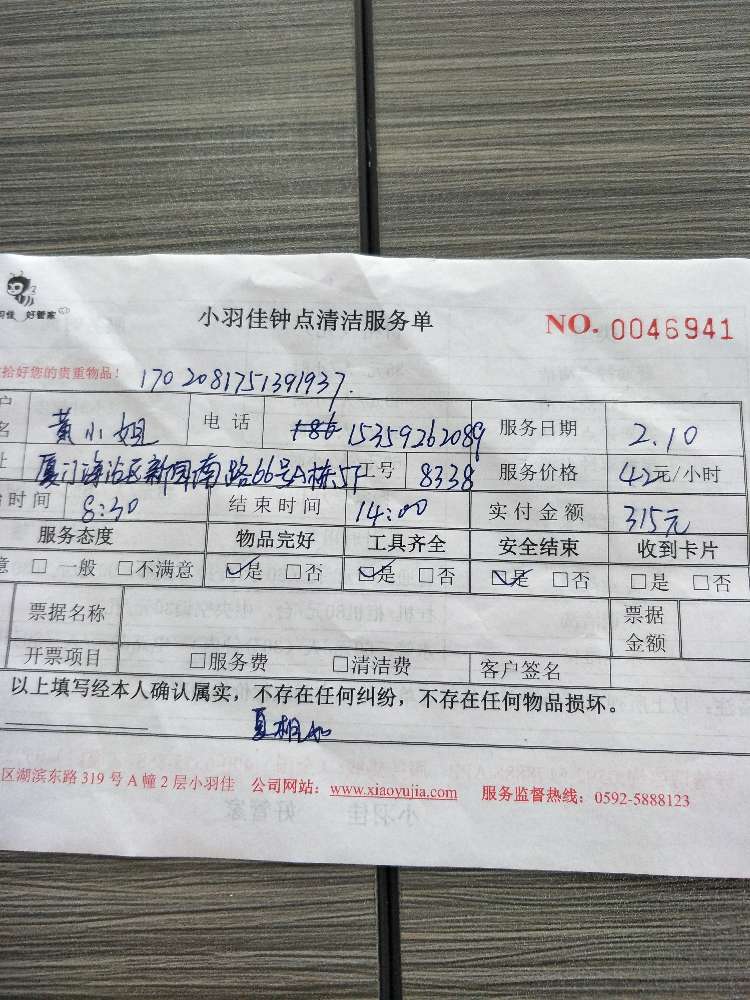 羽佳 好管家
小羽佳钟点清洁服务单
NO. 0046941
拾好您的贵重物品！ 1702081751391937.
户 名 黄小姐 电话 15359262089 服务日期 2.10
址 厦门海沧区新园南路66号A栋5F 工号 8338 服务价格 42元/小时
时间 8:30 结束时间 14:00 实付金额 315元
服务态度 物品完好 工具齐全 安全结束 收到卡片
意 □一般 □不满意 ☑是 □否 ☑是 □否 ☑是 □否 □是 □否
票据名称 票据金额
开票项目 □服务费 □清洁费 客户签名
以上填写经本人确认属实，不存在任何纠纷，不存在任何物品损坏。
区湖滨东路 319 号 A 幢 2 层小羽佳 公司网站：www.xiaoyujia.com 服务监督热线：0592-5888123